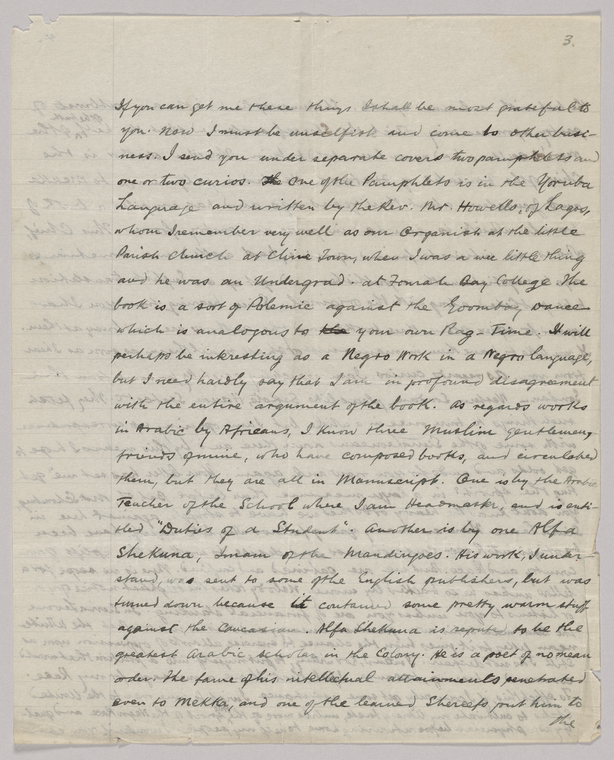 3.
If you can get me these things I shall be most grateful to
you. Now I must be unselfish and come to other busi-
ness. I send you under separate covers two pamphlets and
one or two curios. One of the Pamphlets is in the Yoruba
Language and written by the Rev. Mr. Howells, of Lagos,
whom I remember very well as our Organist at the little
Parish Church at Cline Town, when I was a wee little thing
and he was an Undergrad. at Fourah Bay College. The
book is a sort of Polemic against the Goombay Dance
which is analogous to the your own Rag-Time. It will
perhaps be interesting as a Negro Work in a Negro language,
but I need hardly say that I am in profound disagreement
with the entire argument of the book. As regards works
in Arabic by Africans, I know three Muslim gentlemen,
friends of mine, who have composed books, and circulated
them, but they are all in Manuscript. One is by the Arabic
Teacher of the School where I am Headmaster, and is enti-
tled "Duties of a Student". Another is by one Alfa
Shekuna, Imam of the Mandingoes. His work, I under-
stand, was sent to some of the English publishers, but was
turned down because it contained some pretty warm stuff
against the Caucasian. Alfa Shekuna is reputed to be the
greatest Arabic scholar in the Colony. He is a poet of no mean
order. The fame of his intellectual attainments penetrated
even to Mekka, and one of the learned Shereefs put him to
the